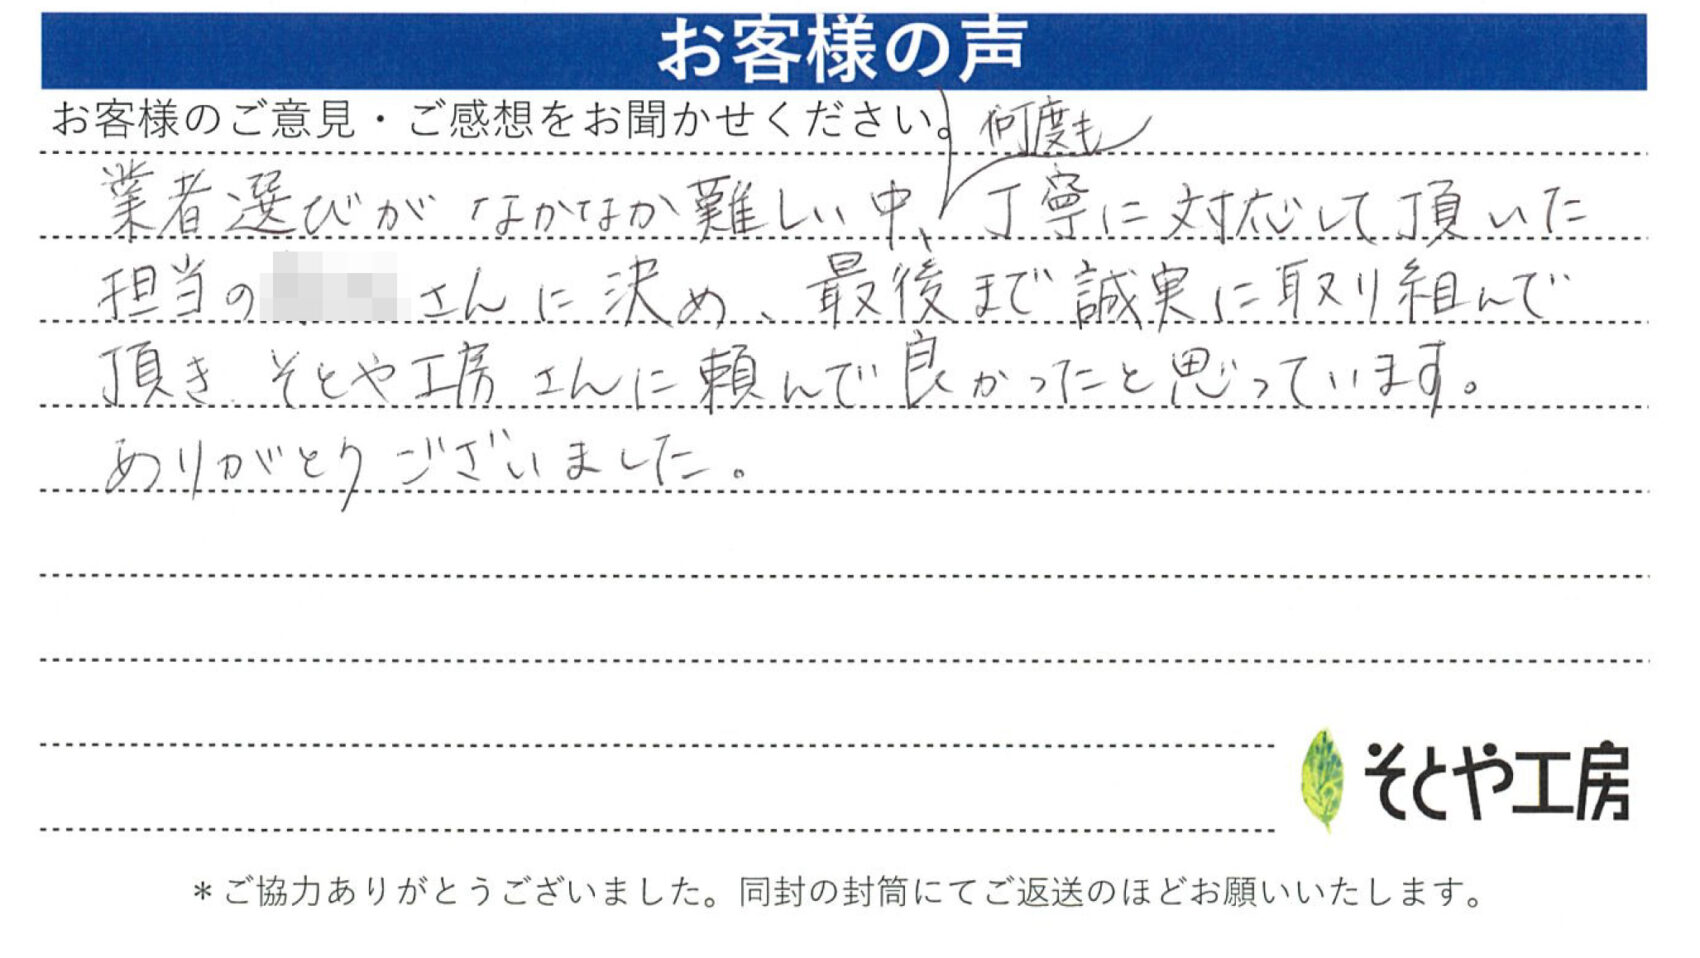 お客様の声
お客様のご意見・ご感想をお聞かせください。
何度も
業者選びがなかなか難しい中、丁寧に対応して頂いた
担当の さんに決め、最後まで誠実に取り組んで
頂き、そとや工房さんに頼んで良かったと思っています。
ありがとうございました。
そとや工房
＊ご協力ありがとうございました。同封の封筒にてご返送のほどお願いいたします。